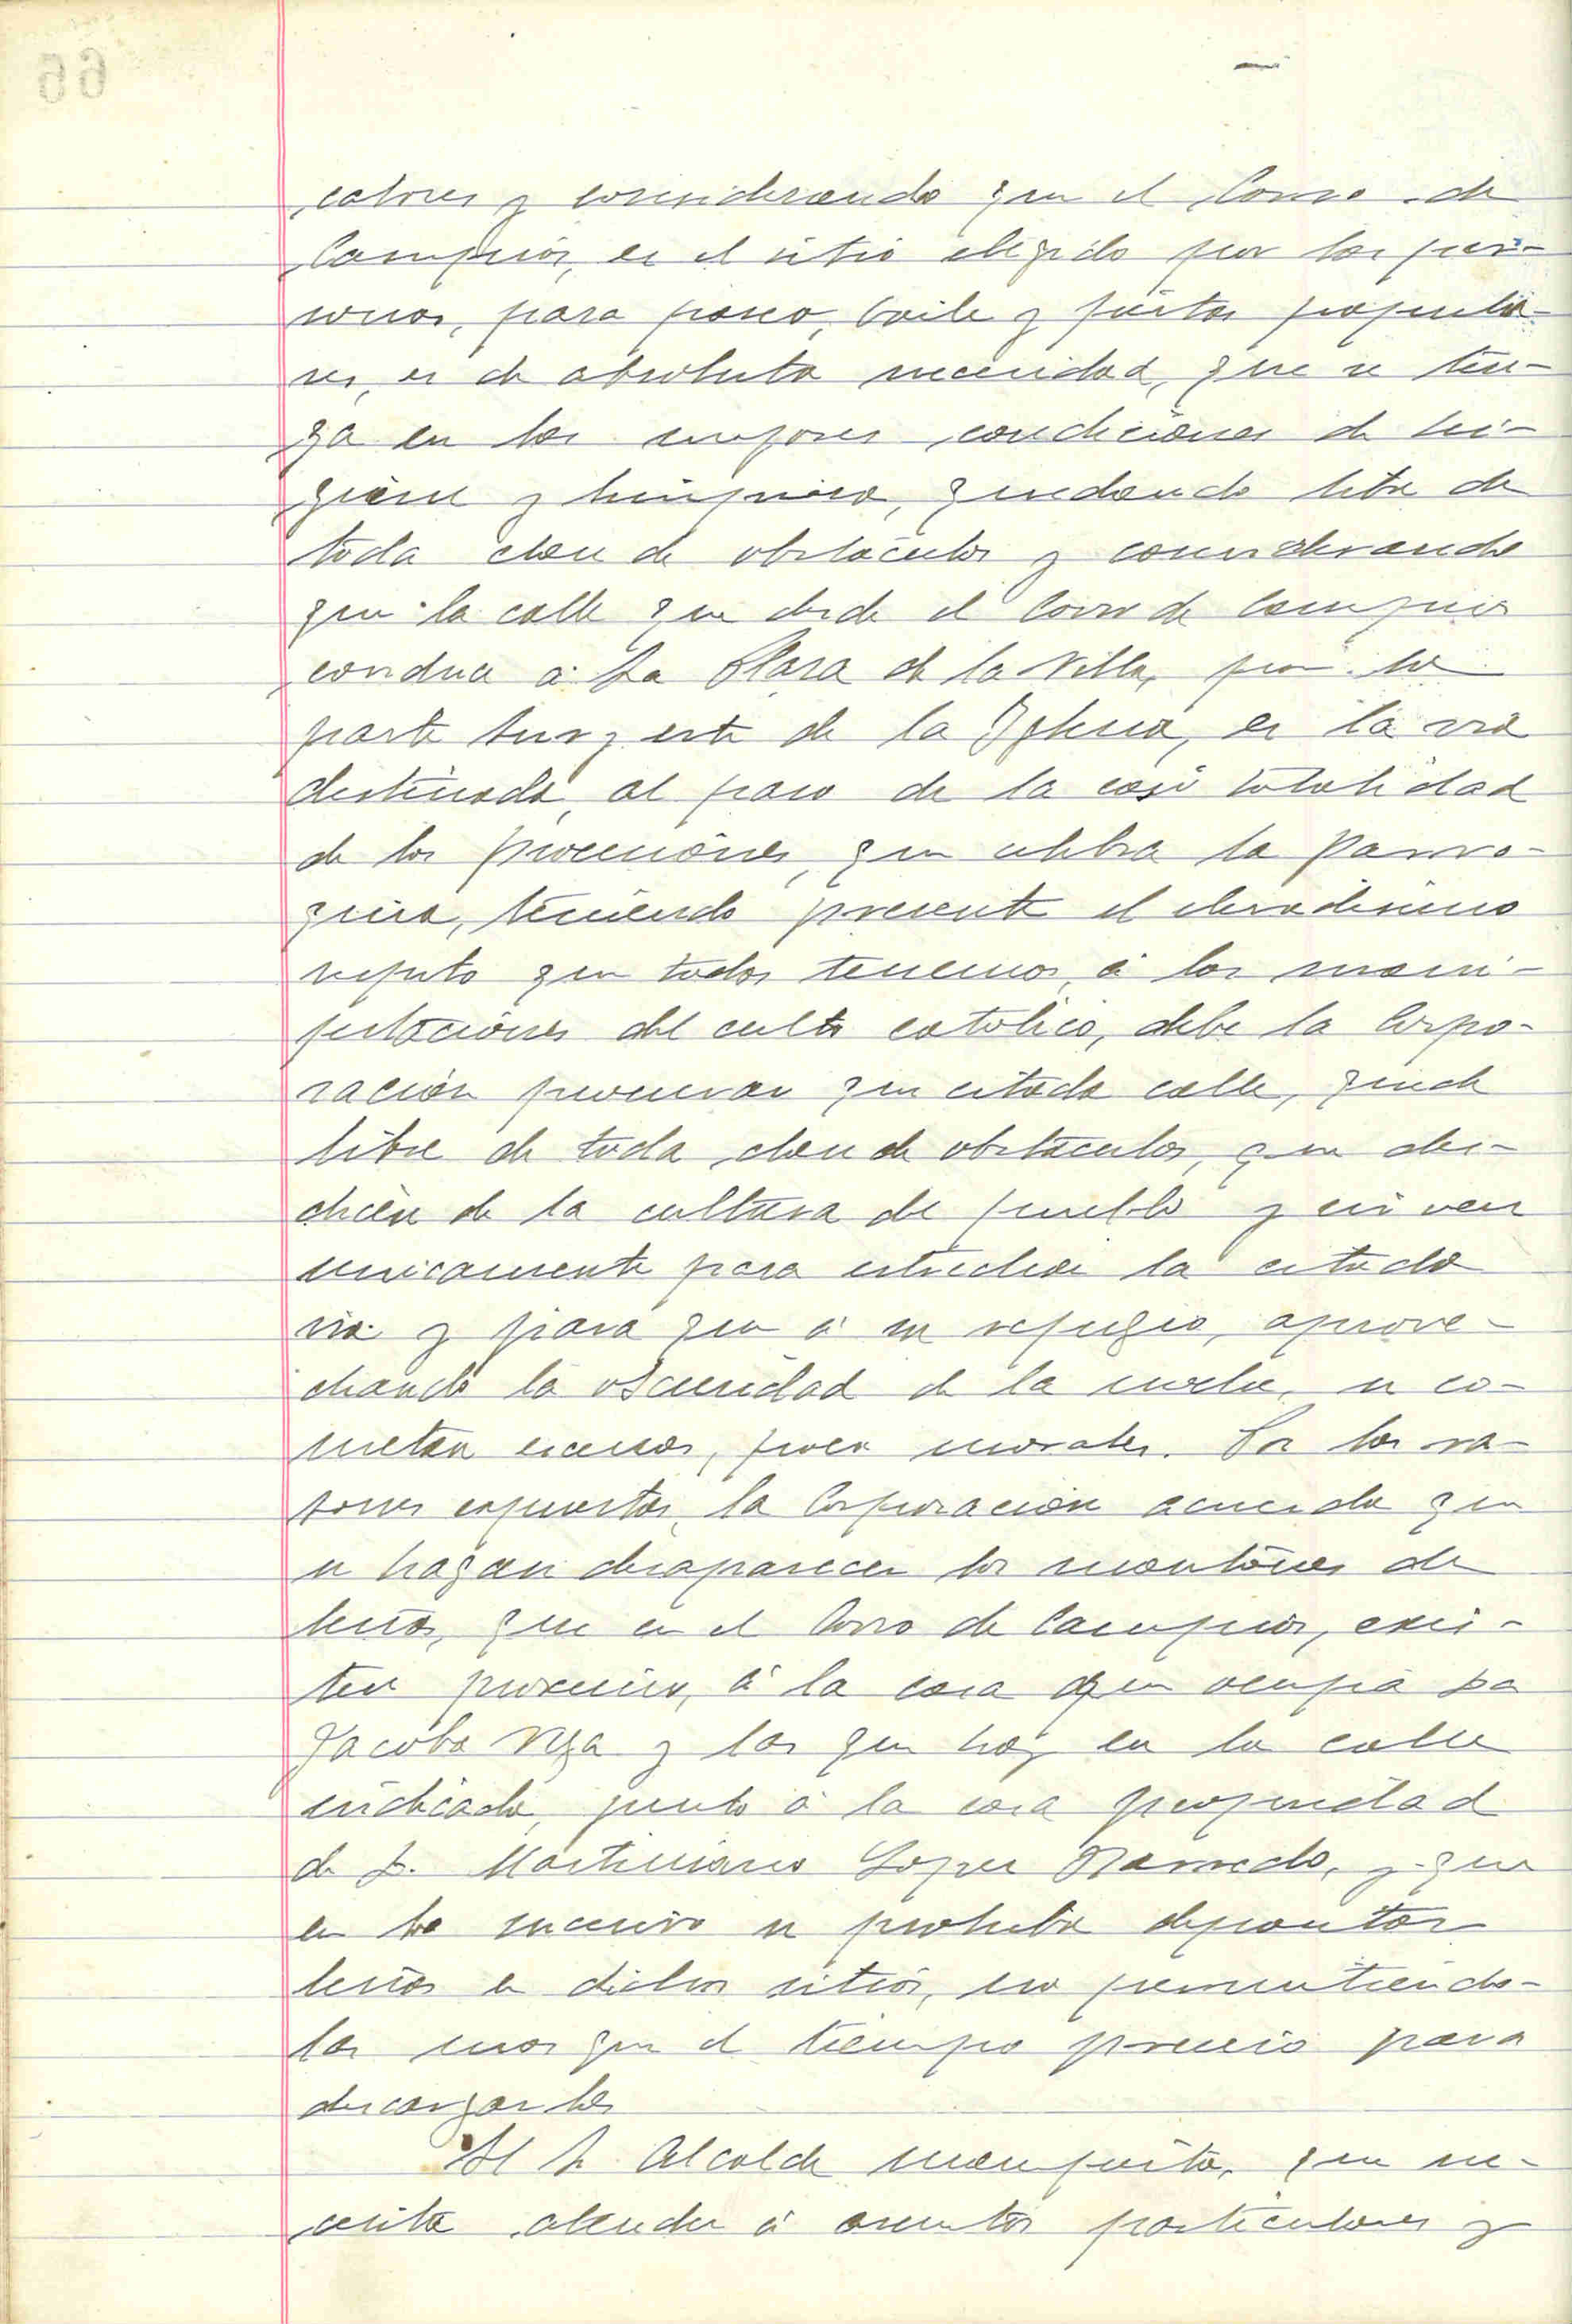 calores y considerando que el Corro de
Campios, es el sitio elegido por las per-
sonas, para paseo, baile y fiestas popula-
res, es de absoluta necesidad, que se ten-
ga en las mejores condiciones de hi-
giene y limpieza, quedando libre de
toda clase de obstáculos y considerando
que la calle que desde el Corro de Campios
conduce á la Plaza de la Villa, por la
parte Sur y este de la Iglesia, es la via
destinada, al paso de la casi totalidad
de las procesiones, que celebra la Parro-
quia, teniendo presente el elevadisimo
respeto que todos tenemos, á las mani-
festaciones del culto catolico, debe la Corpo-
ración procurar que citada calle, quede
libre de toda clase de obstáculos, que des-
dicen de la cultura del pueblo y sirven
unicamente para estrechar la citada
via y para que á su refugio, aprove-
chando la oscuridad de la noche, se co-
metan excesos, poco morales. Por las ra-
zones expuestas, la Corporación acuerda que
se hagan desaparecer los montones de
leña, que en el Corro de Campios, exis-
ten proximos, á la casa que ocupa Da
Jacoba Vega y los que hay en la calle
indicada, junto á la casa propiedad
de D. Martiniano Lopez Ramado, y que
en lo sucesivo se prohiba depositar
leñas en dichos sitios, no permitiendo-
las mas que el tiempo preciso para
descargarlas
El Sr Alcalde manifiesta, que ne-
cesita atender á asuntos particulares y
66